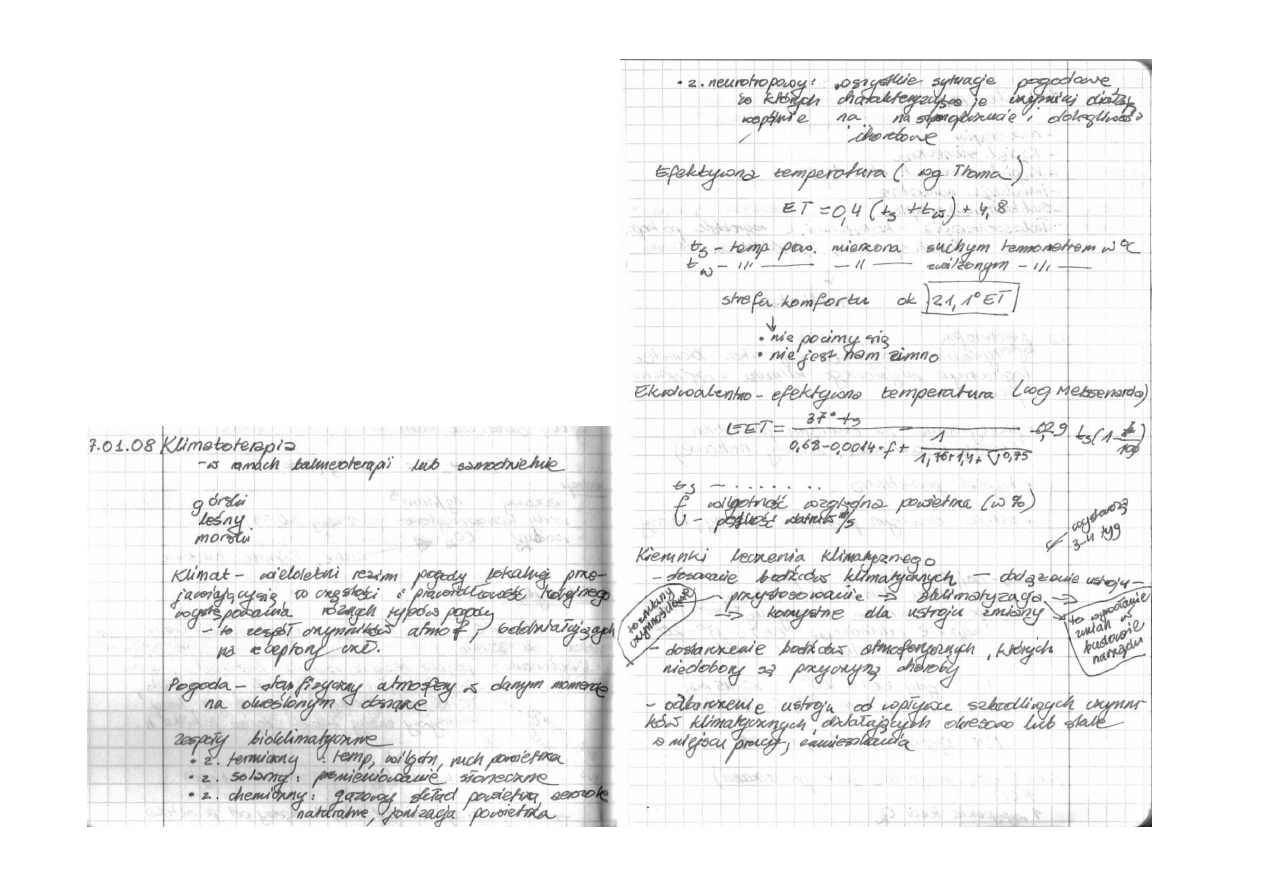 7.01.08 Klimatoterapia
- w ramach balneoterapii lub samodzielnie
górski
leśny
morski
Klimat - wieloletni reżim pogody lokalnej prze-
jawiający się w częstości i prawidłowość kolejnego
występowania różnych typów pogody
- to zespół czynników atmosf, oddziałujących
na receptory
Pogoda - stan fizyczny atmosfery w danym momencie
na określonym obszarze
Zespoły bioklimatyczne
• z. termiczny : temp, wilgotn, ruch powietrza
• z. solarny : promieniowanie słoneczne
• z. chemiczny : gazowy skład powietrza, aerozole
naturalne, jonizacja powietrza
• z. neurotropowy : wszystkie sytuacje pogodowe
w których charakteryzujące je czynniki działają
wspólnie na na samopoczucie i dolegliwości
chorobowe
Efektywna temperatura ( wg Thoma )
ET = 0,4 (ts + tw) + 4,8
ts - temp pow. mierzona suchym termometrem w °C
tw - -//- —— -//- —— zwilżonym -//- ——
strefa komfortu ok 21,1° ET
↓
• nie pocimy się
• nie jest nam zimno
Ekwiwalentno - efektywna temperatura (wg Messenarda)
EET = 37° - ts
0,68 - 0,0014 · f + 1
1,76 + 1,4 + √0,75
ts - . . . . . . .
f wilgotność względna powietrza (w %)
U - prędkość wiatru m/s
wystarczą
3-4 tyg
Kierunki leczenia klimatycznego
- dozowanie bodźców klimatycznych - obciążanie ustroju -
- przystosowanie → aklimatyzacja →
→ korzystne dla ustroju zmiany
to zmiany
czynnościowe
to wywołanie
zmian w
budowie
narządu
- dostarczenie bodźców atmosferycznych, których
niedobory są przyczyną choroby
- odbarczenie ustroju od wpływu szkodliwych czynni-
ków klimatycznych, działających okresowo lub stale
w miejscu pracy, zamieszkania